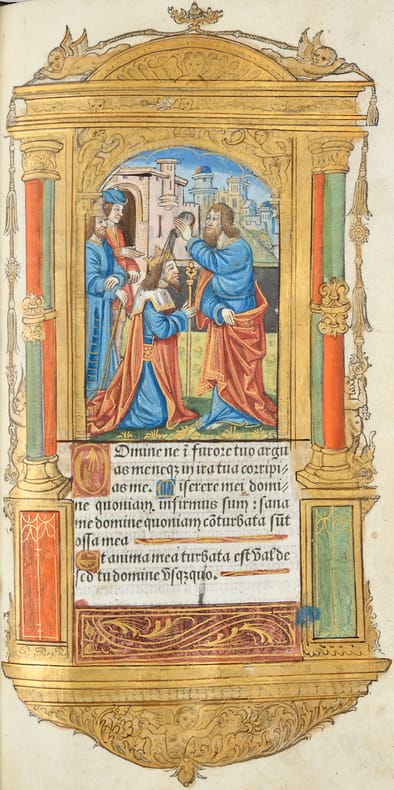 Domine ne ĩ furore tuo argu
as me neqꝫ in ira tua corripi-
as me. Miserere mei domi-
ne quoniam infirmus sum: sana
me domine quoniam cõturbata sũt
ossa mea
Et anima mea turbata est valde
sed tu domine vsqꝫquo.